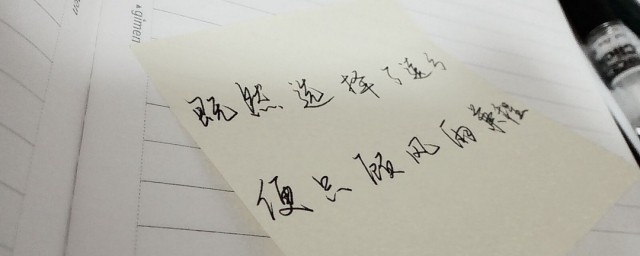 gimen
既然选择了远方
便只顾风雨兼程